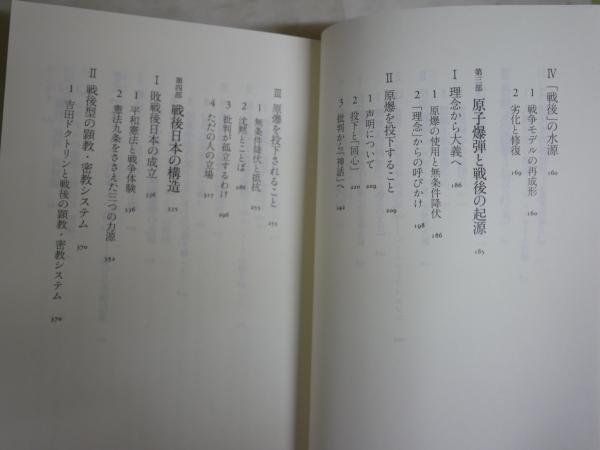 Ⅳ 「戦後」の水源 160
1 戦争モデルの再成形 160
2 劣化と修復 169
第三部 原子爆弾と戦後の起源 185
Ⅰ 理念から大義へ 186
1 原爆の使用と無条件降伏 186
2 「理念」からの呼びかけ 198
Ⅱ 原爆を投下すること 209
1 声明について 209
2 投下と「回心」 220
3 批判から「神話」へ 242
Ⅲ 原爆を投下されること 255
1 無条件降伏と抵抗 255
2 沈黙とことば 286
3 批判が孤立するわけ 298
4 ただの人の立場 317
第四部 戦後日本の構造 335
Ⅰ 敗戦後日本の成立 336
1 平和憲法と戦争体験 336
2 憲法九条をささえた三つの力源 352
Ⅱ 戦後型の顕教・密教システム 370
1 吉田ドクトリンと戦後の顕教・密教システム 370